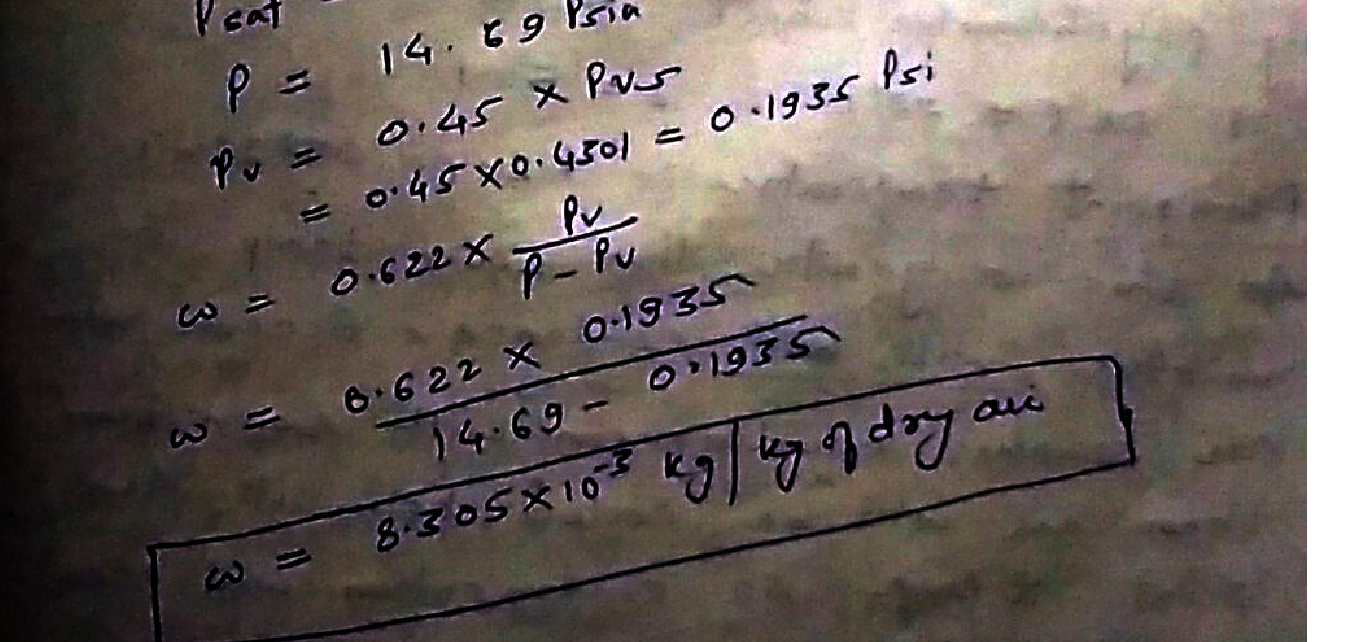 Psat
P = 14.69 Psia
Pv = 0.45 × Pvs
= 0.45 × 0.4301 = 0.1935 Psi
ω = 0.622 × Pv / P - Pv
ω = 0.622 × 0.1935 / 14.69 - 0.1935
ω = 8.305 × 10⁻³ kg / kg of dry air